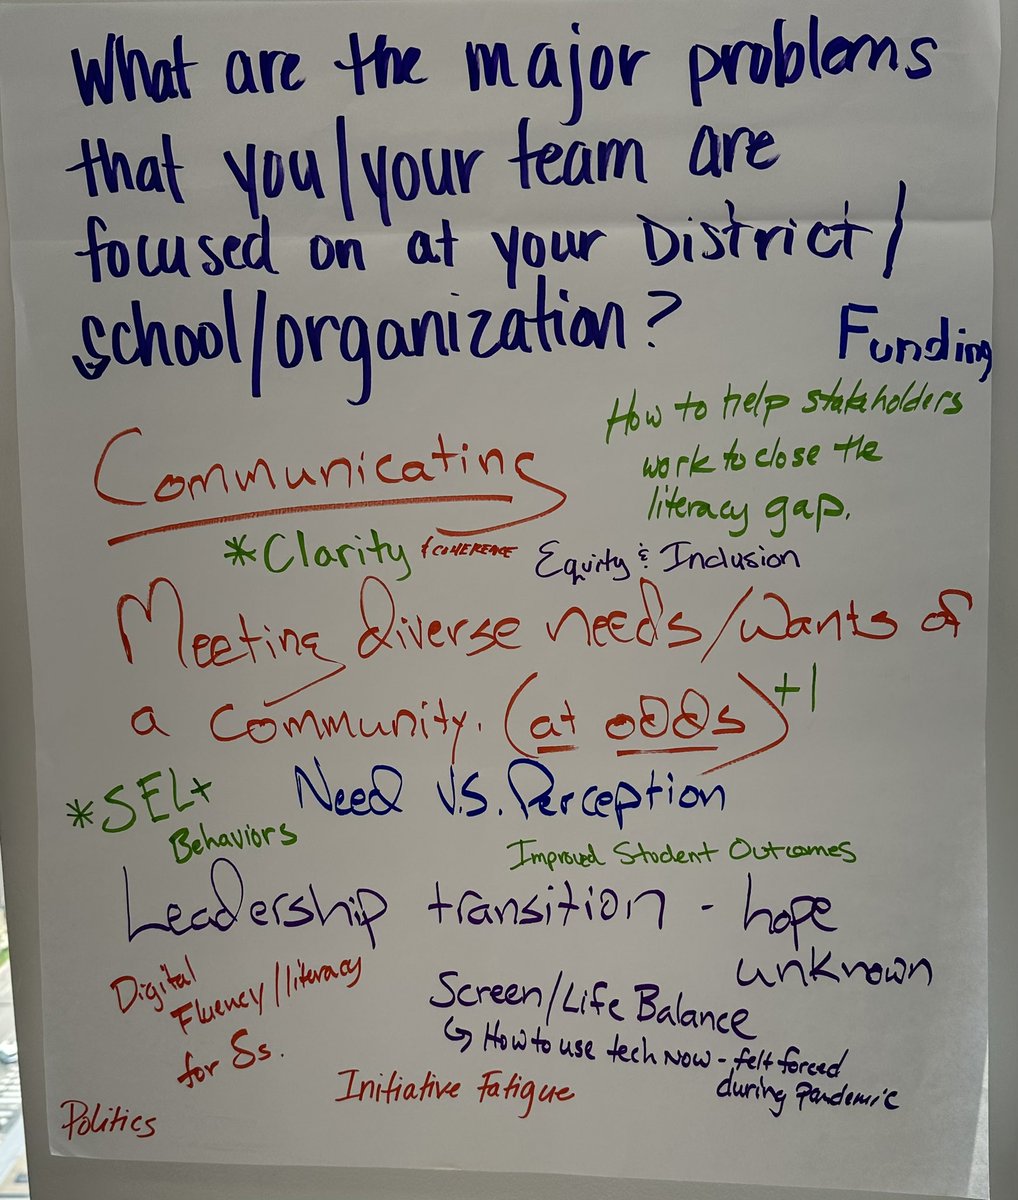 What are the major problems
that you/your team are
focused on at your District/
school/organization?
Funding
How to help stakeholders
work to close the
literacy gap.
Communicating
*Clarity & COHERENCE
Equity & Inclusion
Meeting diverse needs/wants of
a community. (at odds) +1
*SEL+
Behaviors
Need V.S. Perception
Improved Student Outcomes
Leadership transition - hope
unknown
Digital
Fluency/literacy
for Ss.
Screen/Life Balance
↳ How to use tech now - felt forced
during pandemic
Initiative Fatigue
Politics